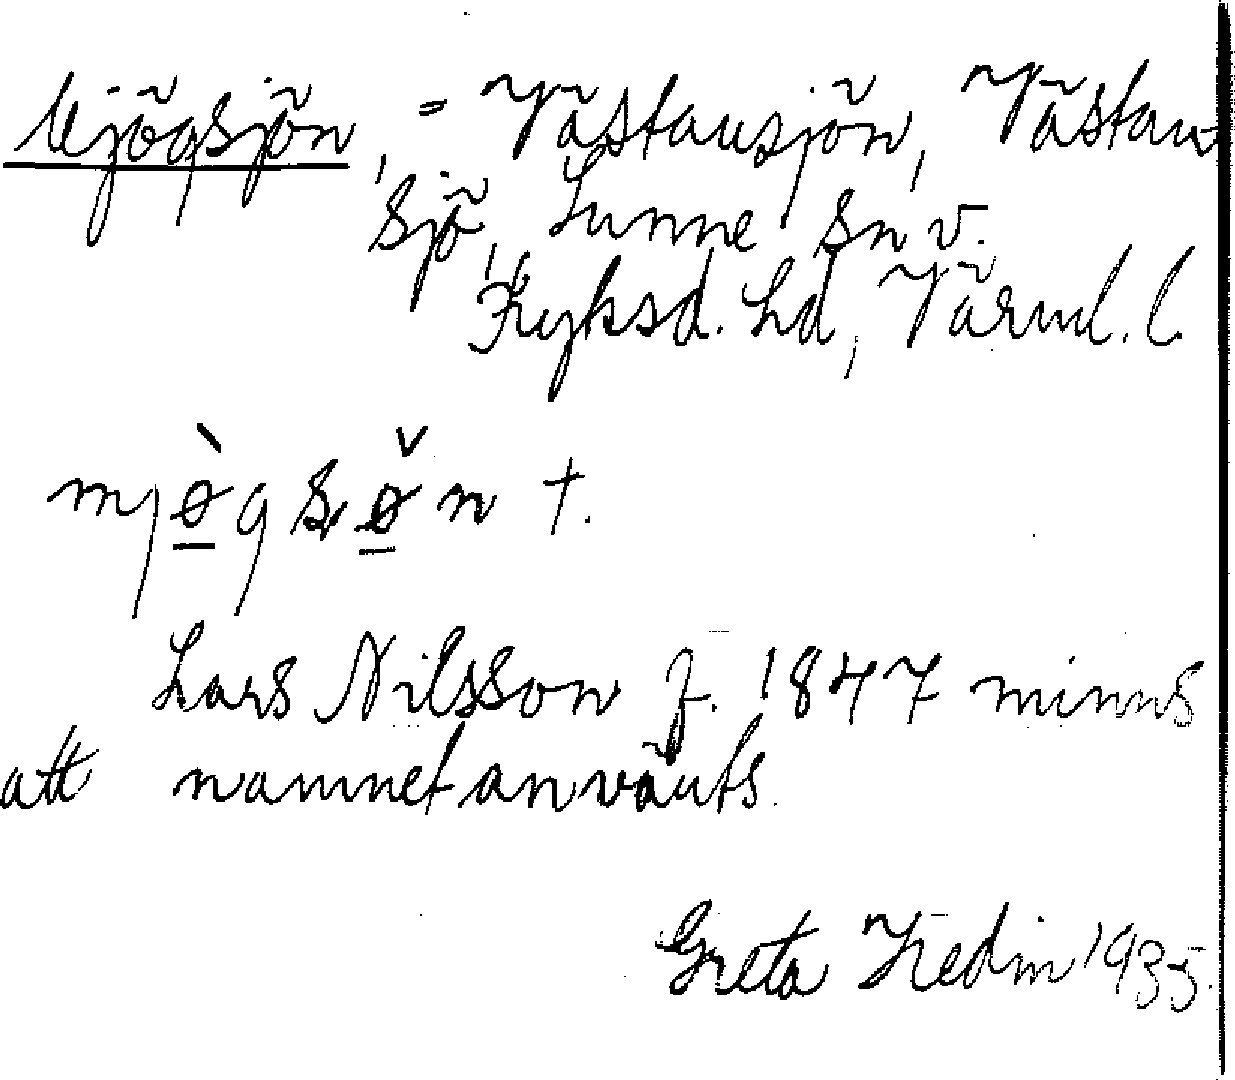 Mjögsjön, = Västansjön, Västan-
sjö, Sunne sn v.
Fryksd. hd, Värml. l.
mjø̀gsøn̆ †.
Lars Nilsson f. 1847 minns
att namnet använts.
Greta Hedin 1935.